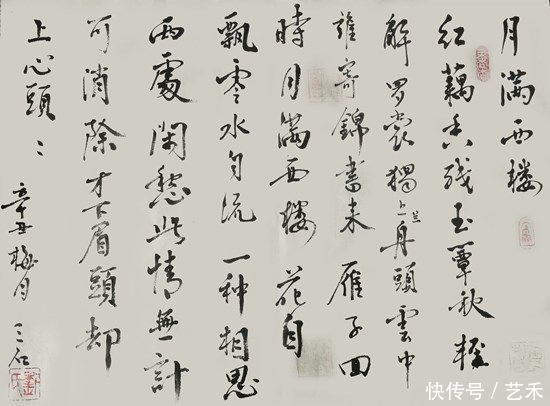 月满西楼
红藕香残玉簟秋轻
解罗裳獨上兰舟頭雲中
誰寄錦書来 雁子回
時月满西楼 花自
飘零水自流 一种相思
两處閑愁此情無計
可消除才下眉頭却
上心頭:
辛丑梅月 三石
快传号/艺禾